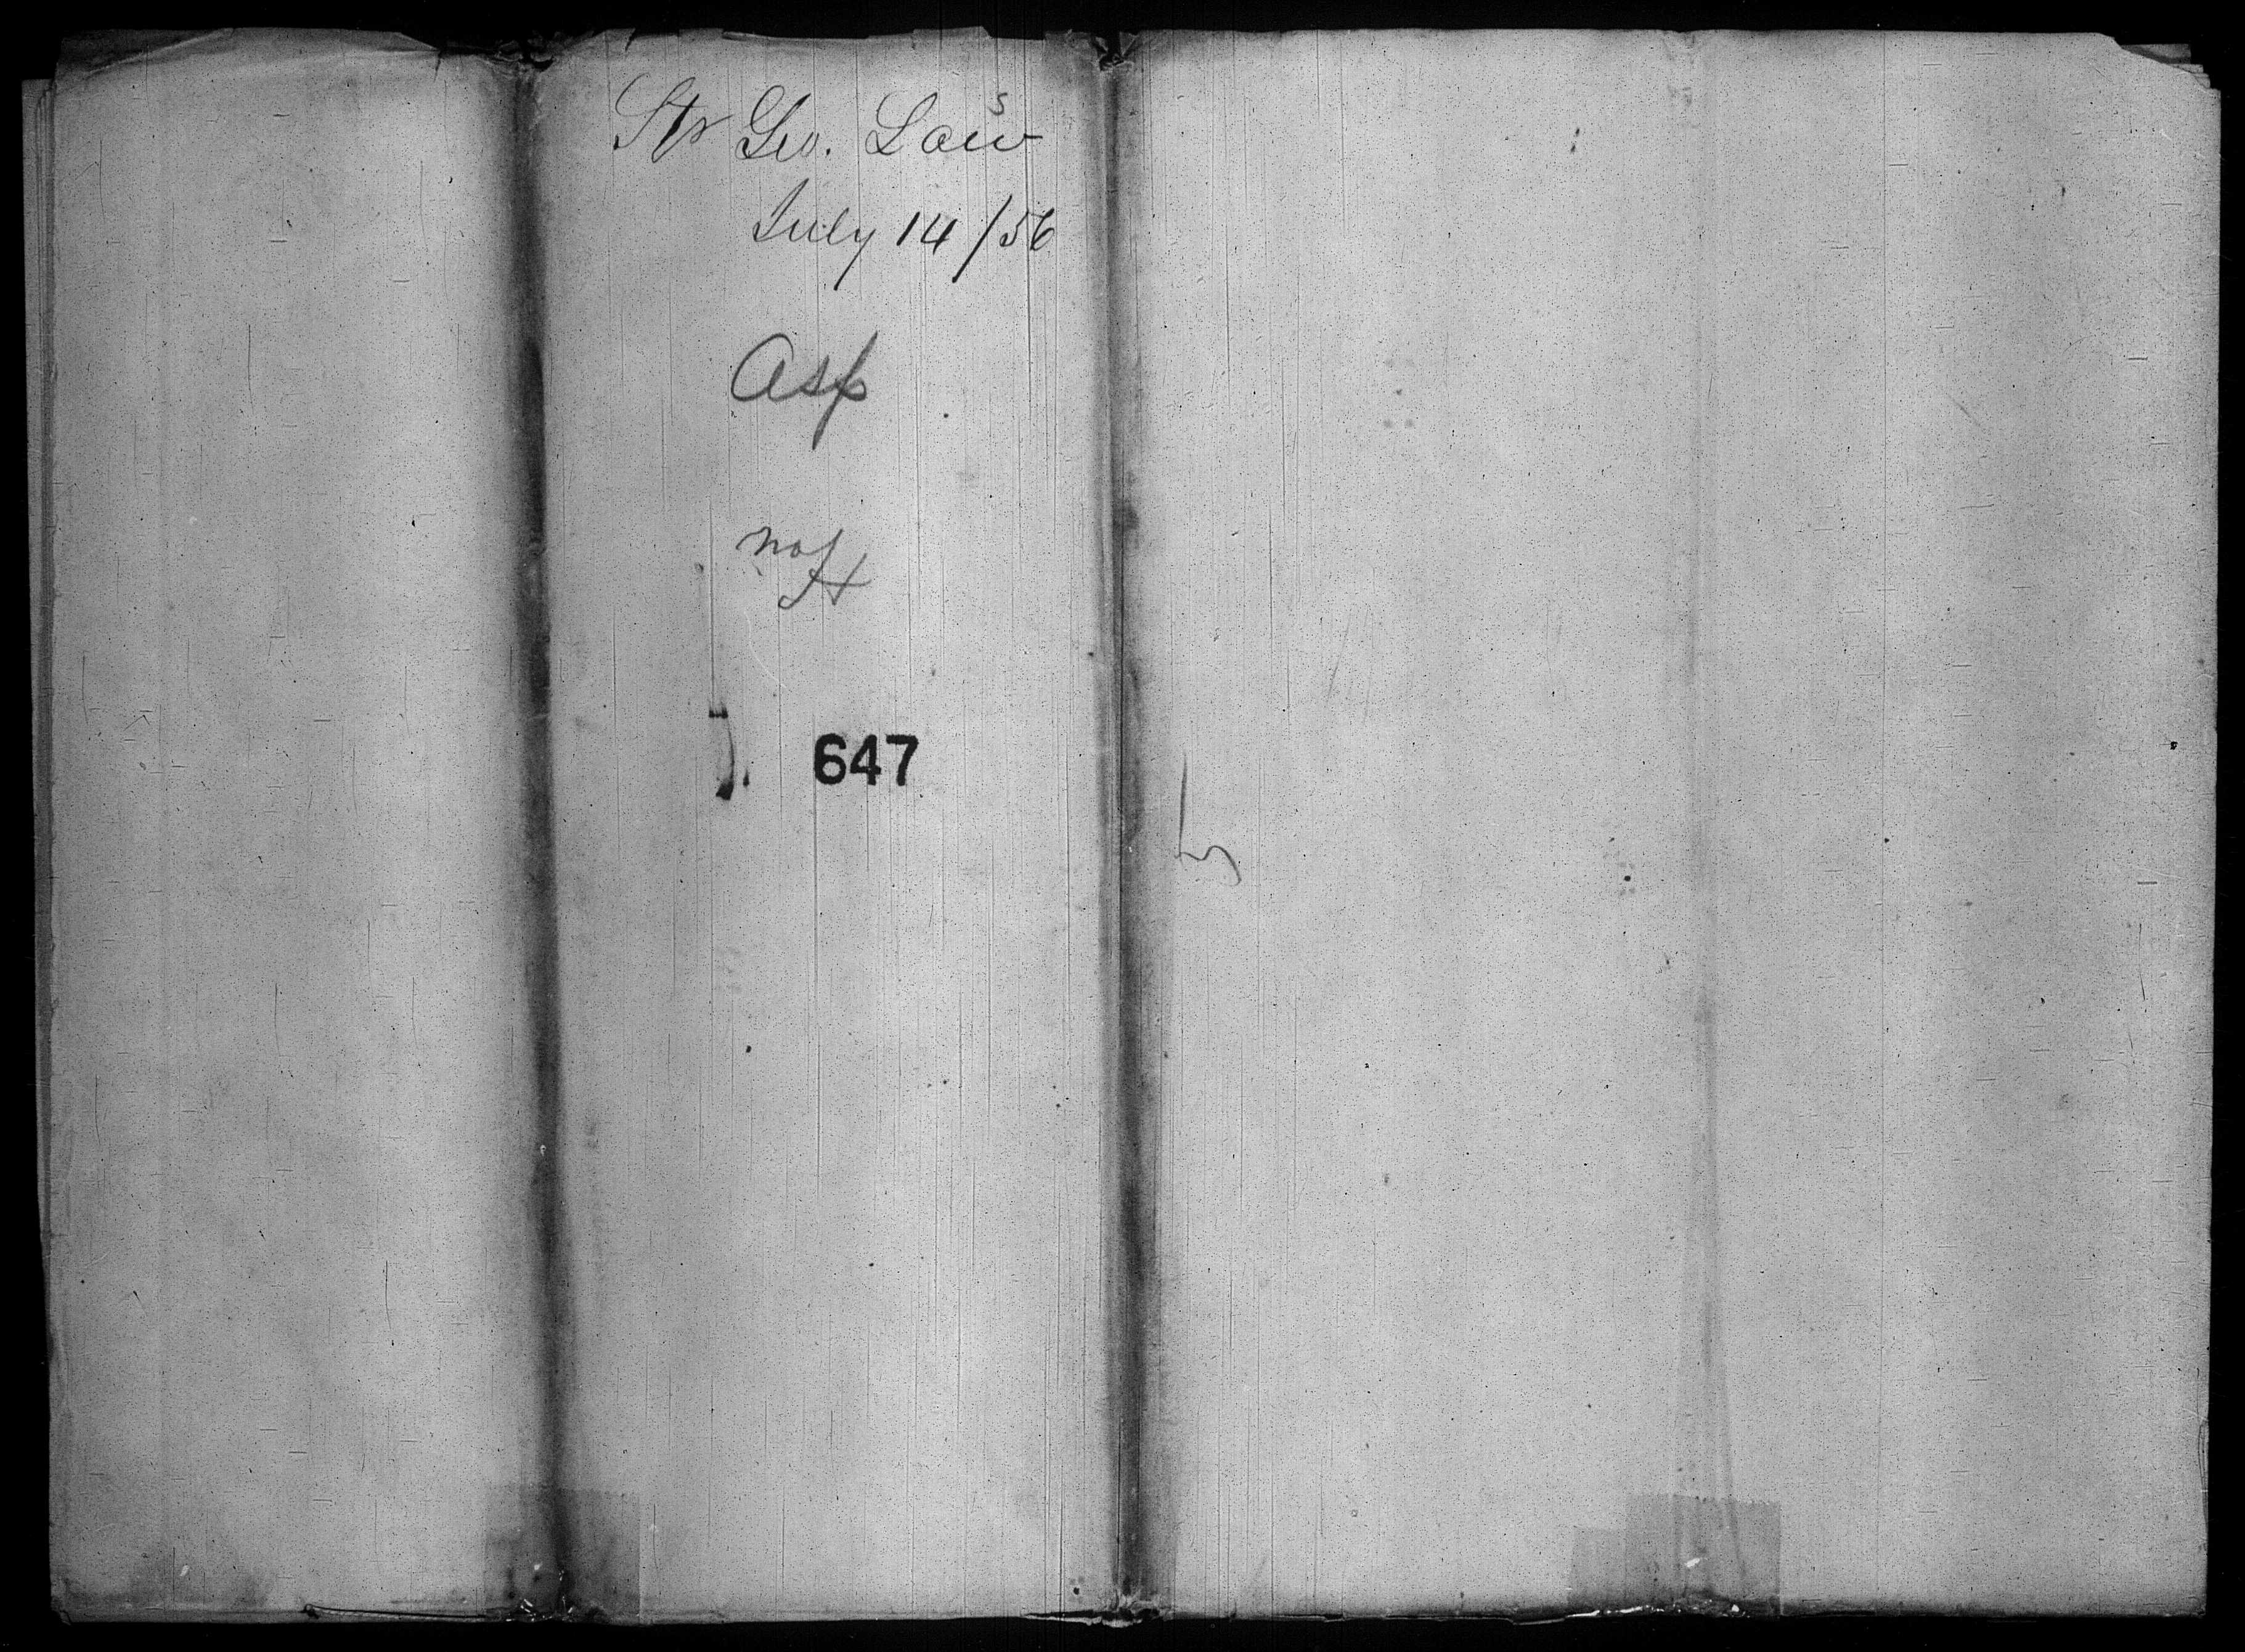 Str Geo. Law
July 14/56
Asp
no H
647